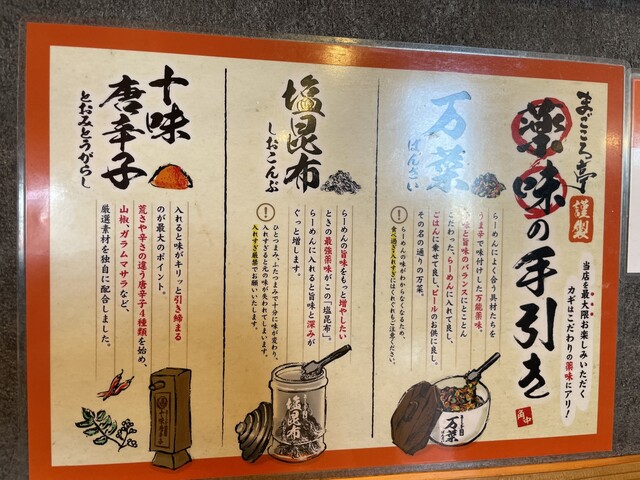 まごころ亭
謹製
薬味の手引き
当店を最大限お楽しみいただく
カギはこだわりの薬味にアリ！
万菜
ばんざい
らーめんによく合う具材たちを
うま辛で味付けした万能薬味。
味と旨味のバランスにとことん
こだわった、らーめんに入れて良し、
ごはんに乗せて良し、ビールのお供に良し。
その名の通りの万菜。
！
らーめんの味がわからなくなるため、
食べ過ぎ入れすぎにはくれぐれもご注意ください。
万菜
塩昆布
しおこんぶ
らーめんの旨味をもっと増やしたい
ときの最強薬味がこの「塩昆布」。
らーめんに入れると旨味と深みが
ぐっと増します。
！
ひとつまみ、ふたつまみで十分に味が変わり、
入れすぎると元の味が失われてしまいます。
入れすぎ厳禁でお願いいたします。
塩昆布
十味
唐辛子
とおみとうがらし
入れると味がキリッと引き締まる
のが最大のポイント。
荒さや辛さの違う唐辛子4種類を始め、
山椒、ガラムマサラなど、
厳選素材を独自に配合しました。